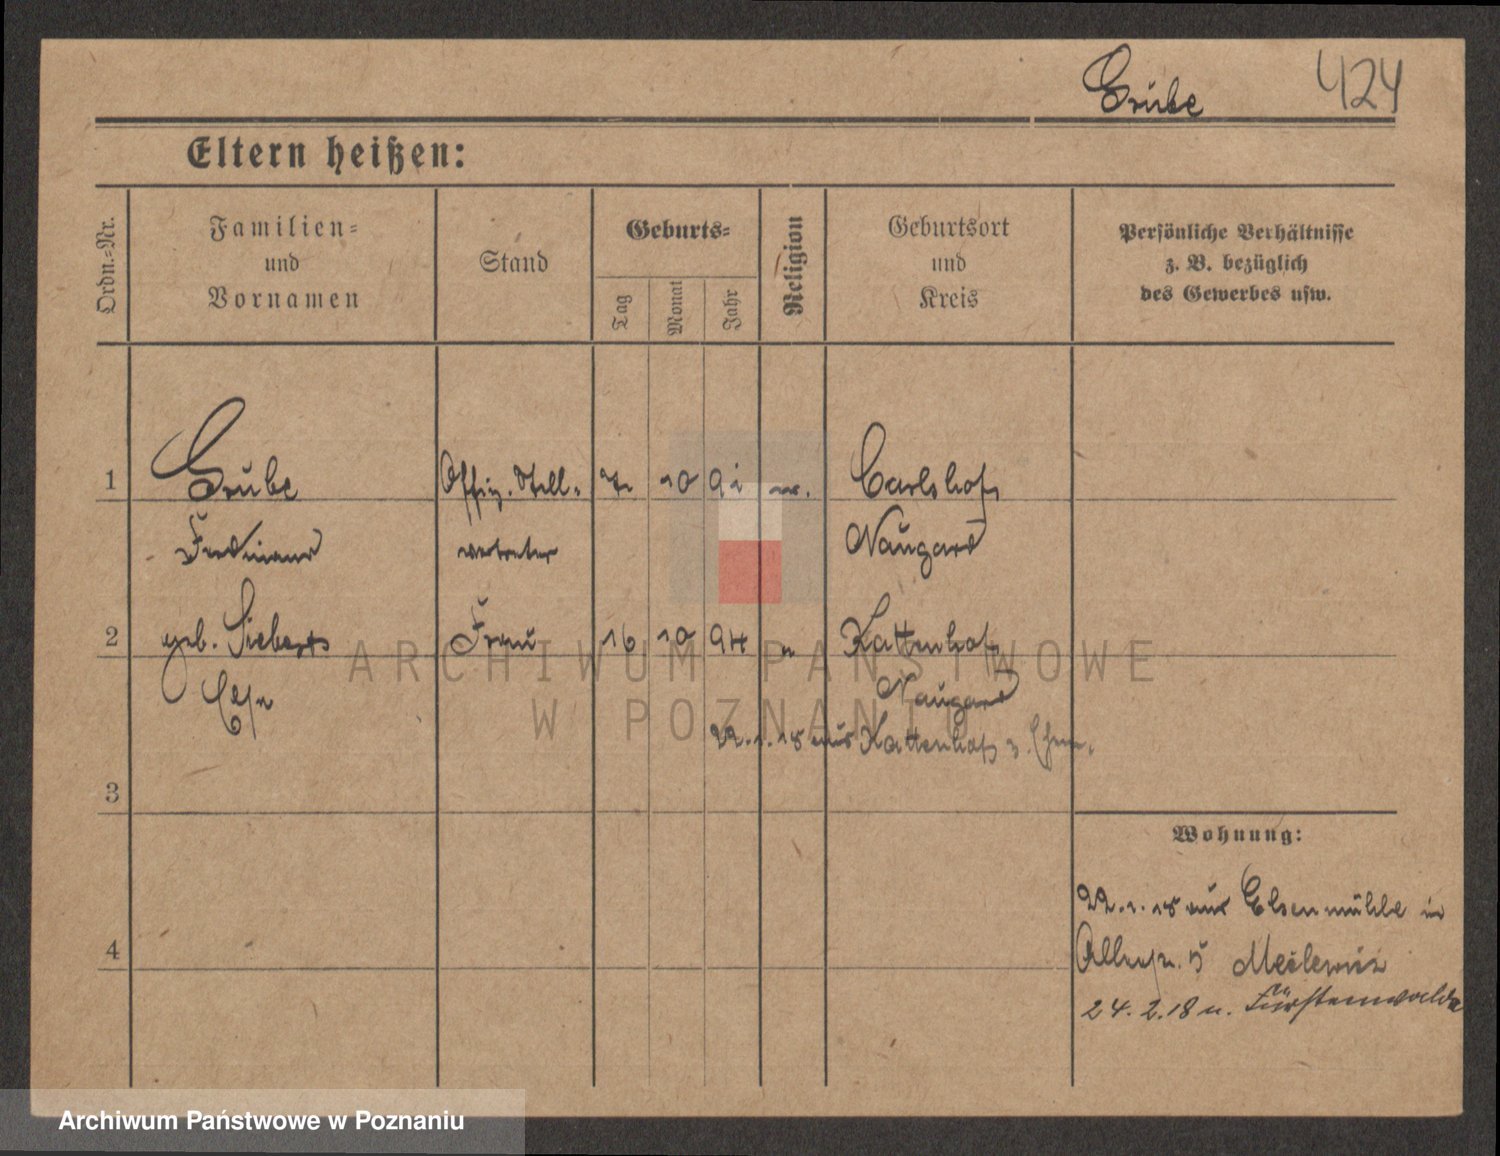 Grube 424
Eltern heißen:
Ordn.-Nr.
Familien-
und
Vornamen
Stand
Geburts-
Tag
Monat
Jahr
Religion
Geburtsort
und
Kreis
Persönliche Verhältnisse
z. B. bezüglich
des Gewerbes usw.
1 Grube Offiz. Stell- 7. 10 91 Carlshof
Ferdinand vertreter Naugard
2 geb. Sieberts Frau 16 10 94 Kattenhof
Else Naugard
22.1.18 aus Kattenhof z.
3
Wohnung:
22.1.18 aus Elsenmühle
4
24.2.18 n. Fürstenwalde
ARCHIWUM PAŃSTWOWE
W POZNANIU
Archiwum Państwowe w Poznaniu